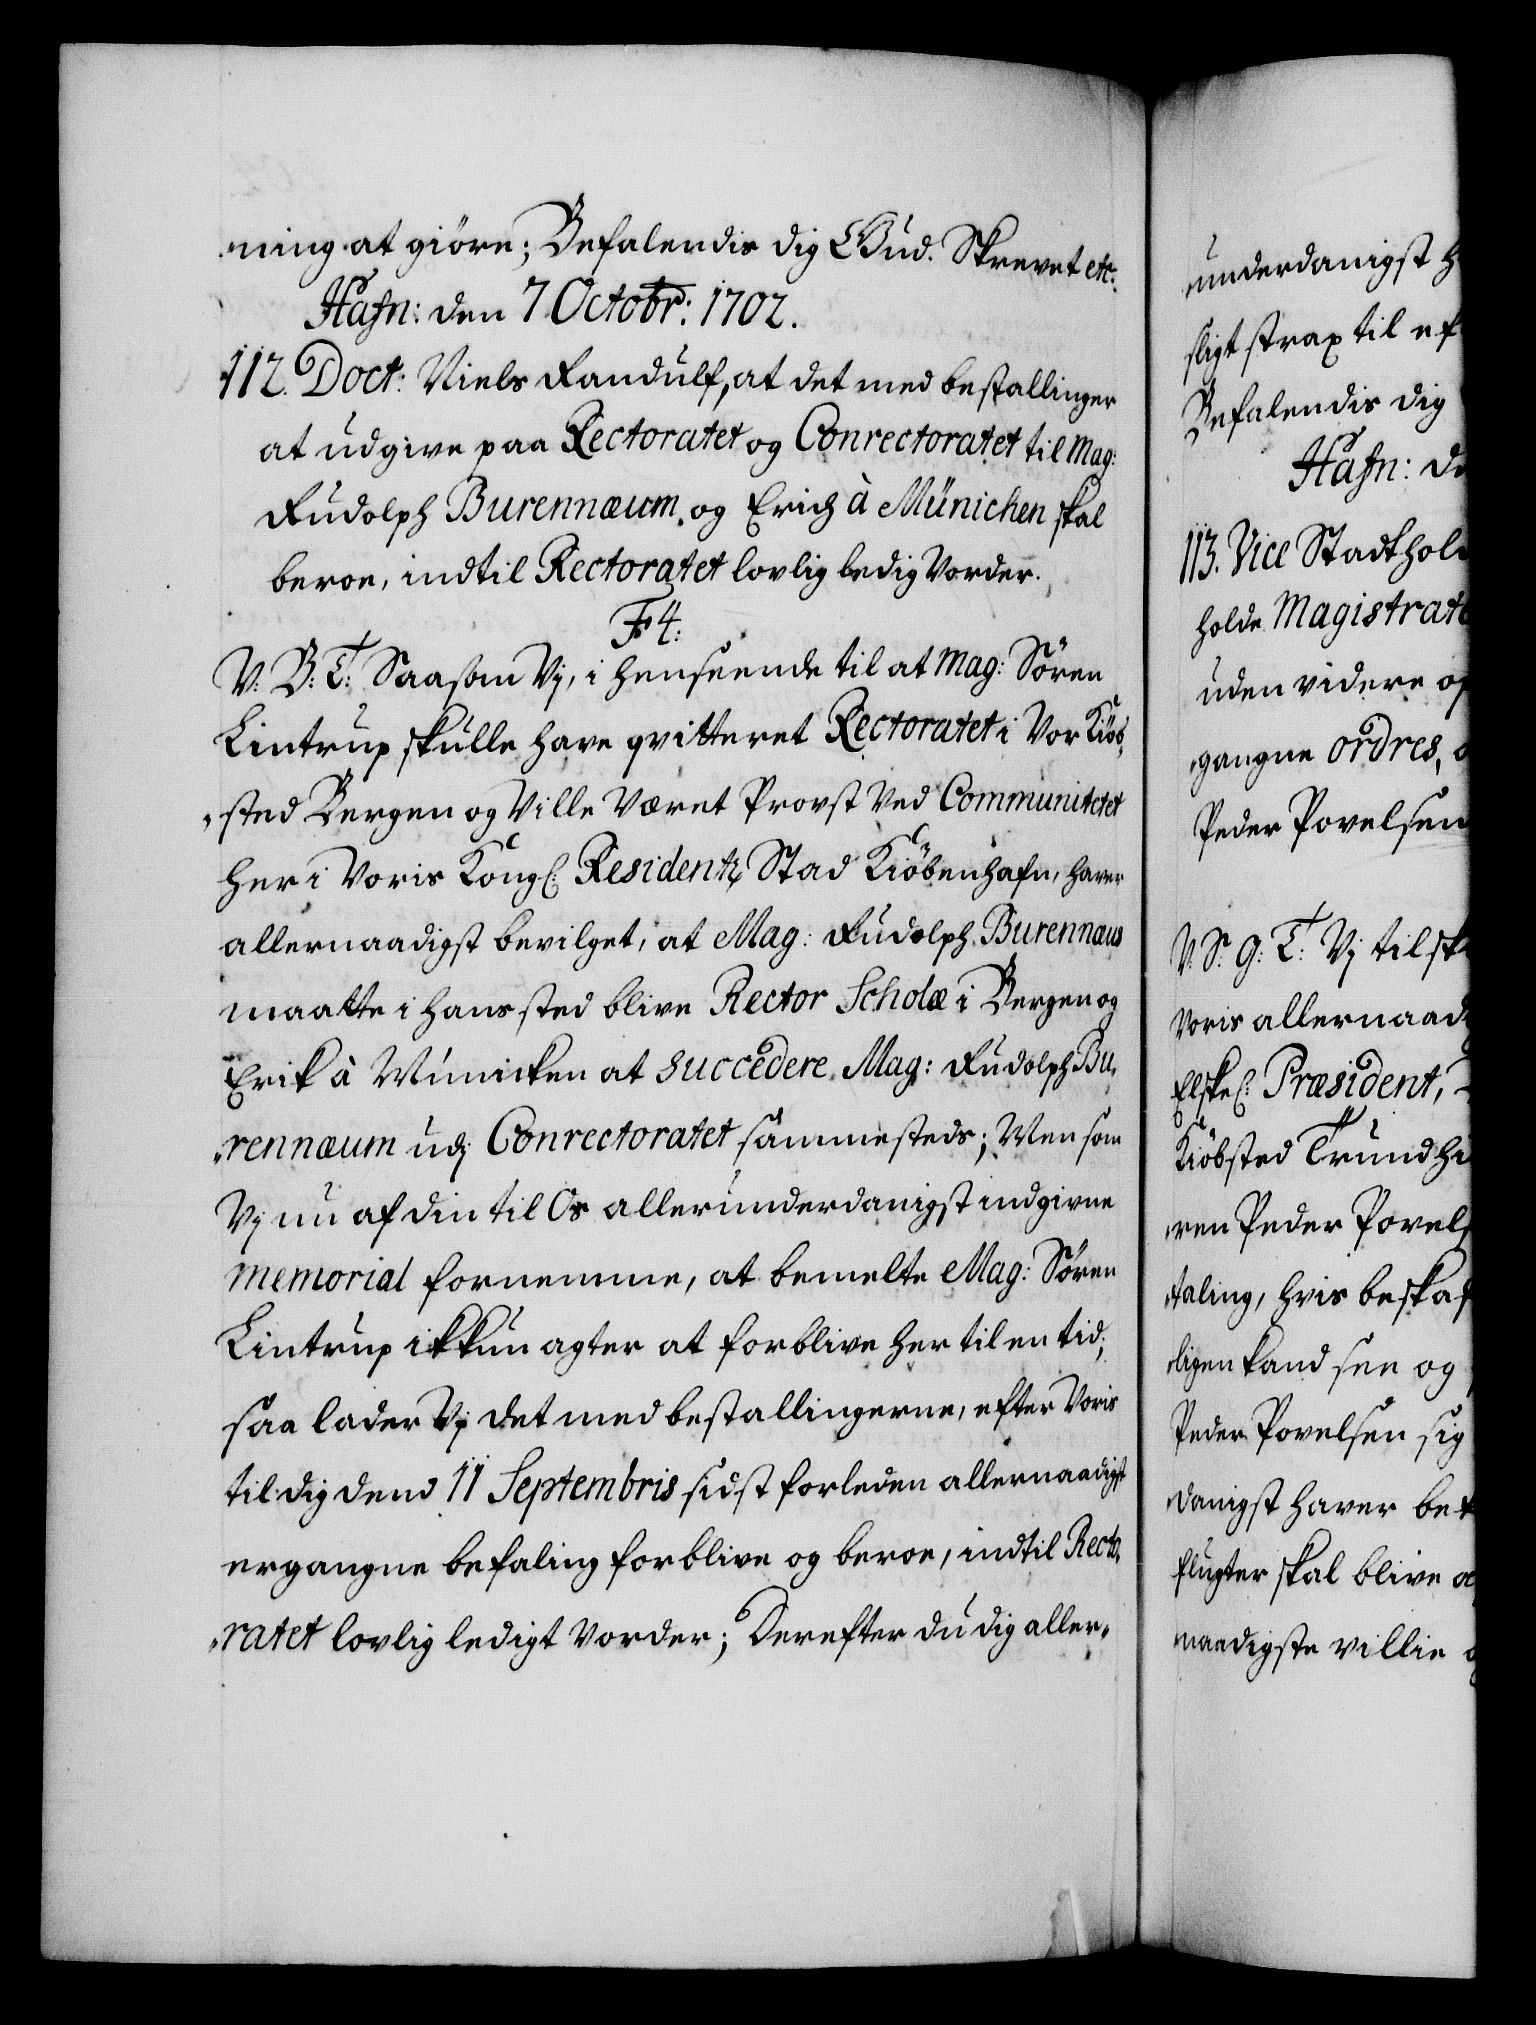 ning at giöre; Befalendis dig Gud. Skrevet etc:
Hafn: den 7 Octobr: 1702.
112. Doct: Niels Randulf, at det med bestallinger
at udgive paa Rectoratet og Conrectoratet til Mag:
Rudolph Burennæum, og Erich à Münichen skal
beroe, indtil Rectoratet lovlig ledig Vorder.
F4:
V. B: T: Saasom Vj, i henseende til at Mag: Sören
Lintrup skulle have qvitteret Rectoratet i Vor Kiöb,
,sted Bergen og Ville Været Provst Ved Communitetet
her i Voris Kongl: Residentz Stad Kiöbenhafn, haver
allernaadigst bevilget, at Mag: Rudolph Burennæus
maatte i hans sted blive Rector Scholæ i Bergen og
Erik à Münicken at succedere Mag: Rudolph Bu,
,rennæum udj Conrectoratet sammesteds; Men som
Vj nu af din til Os allerunderdanigst indgivne
memorial fornemme, at bemelte Mag: Sören
Lintrup ikkun agter at forblive her til en tid;
saa lader Vj det med bestallingerne, efter Voris
til dig dend 11 Septembris sidst forleden allernaadigst
ergangne befaling forblive og beroe, indtil Recto,
,ratet lovlig ledigt Vorder; Derefter du dig aller,
underdanigst h
sligt strax til ef
Befalendis dig
Hafn: d
113. Vice Stadthold
holde Magistrat
uden videre op
,gangne ordres,
Peder Povelsen
V. S. G: T: Vj tilsk
Voris allernaad
Elskel: Præsident,
Kiöbsted Trundh
,ren Peder Povels
,taling, hvis beskaf
,ligen kand see og
Peder Povelsen sig
,danigst haver be
flugter skal blive
naadigste villie